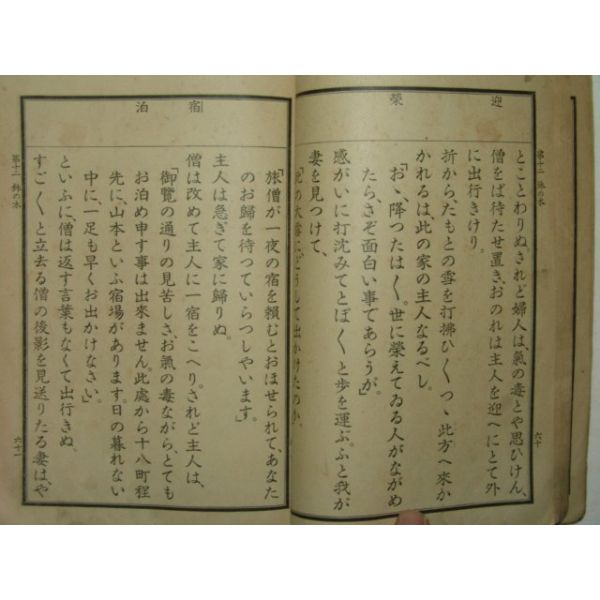 迎
榮
とことわりぬ。されど婦人は、氣の毒とや思ひけん、
僧をば待たせ置き、おのれは主人を迎へにとて外
に出行きけり。
折から、たもとの雪を打拂ひ〳〵つゝ此方へ來か
かれるは、此の家の主人なるべし。
「おゝ、降つたは〳〵。世に榮えてゐる人がながめ
たら、さぞ面白い事であらうが。」
感がいに打沈みてとぼ〳〵と歩を運ぶ。ふと我が
妻を見つけて、
「此の大雪に、どうして出かけたのか。
第十二 鉢の木
六十
宿
泊
「旅僧が一夜の宿を頼むとおほせられて、あなた
のお歸を待つていらつしやいます。」
主人は急ぎて家に歸りぬ。
僧は改めて主人に一宿をこへり。されど主人は、
「御覽の通りの見苦しさ、お氣の毒ながらとても
お泊め申す事は出來ません。此處から十八町程
先に、山本といふ宿場があります。日の暮れない
中に、一足も早くお出かけなさい。」
といふに、僧は返す言葉もなくて出行きぬ。
すご〳〵と立去る僧の後影を見送りたる妻は、や
第十二 鉢の木
六十一